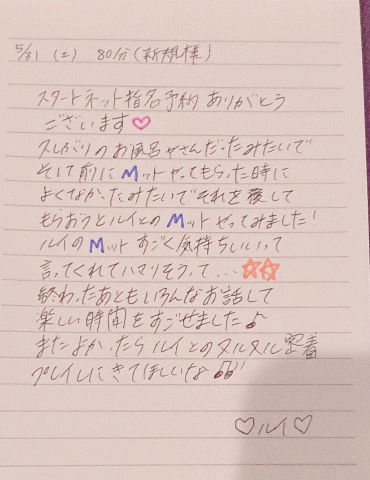 5/31 (土) 80分(新規様)
スタートネット指名予約ありがとう
ございます♡
久しぶりのお風呂やさんだったみたいで
そして前にMットやってもらった時に
よくなかったみたいでそれを覆して
もらおうとルイとのMットやってみました!
ルイのMットすごく気持ちいいって
言ってくれてハマりそうって...☆☆
終わったあともいろんなお話して
楽しい時間をすごせました♪
またよかったらルイとのヌルヌル密着
プレイしにきてほしいな♫
♡ルイ♡